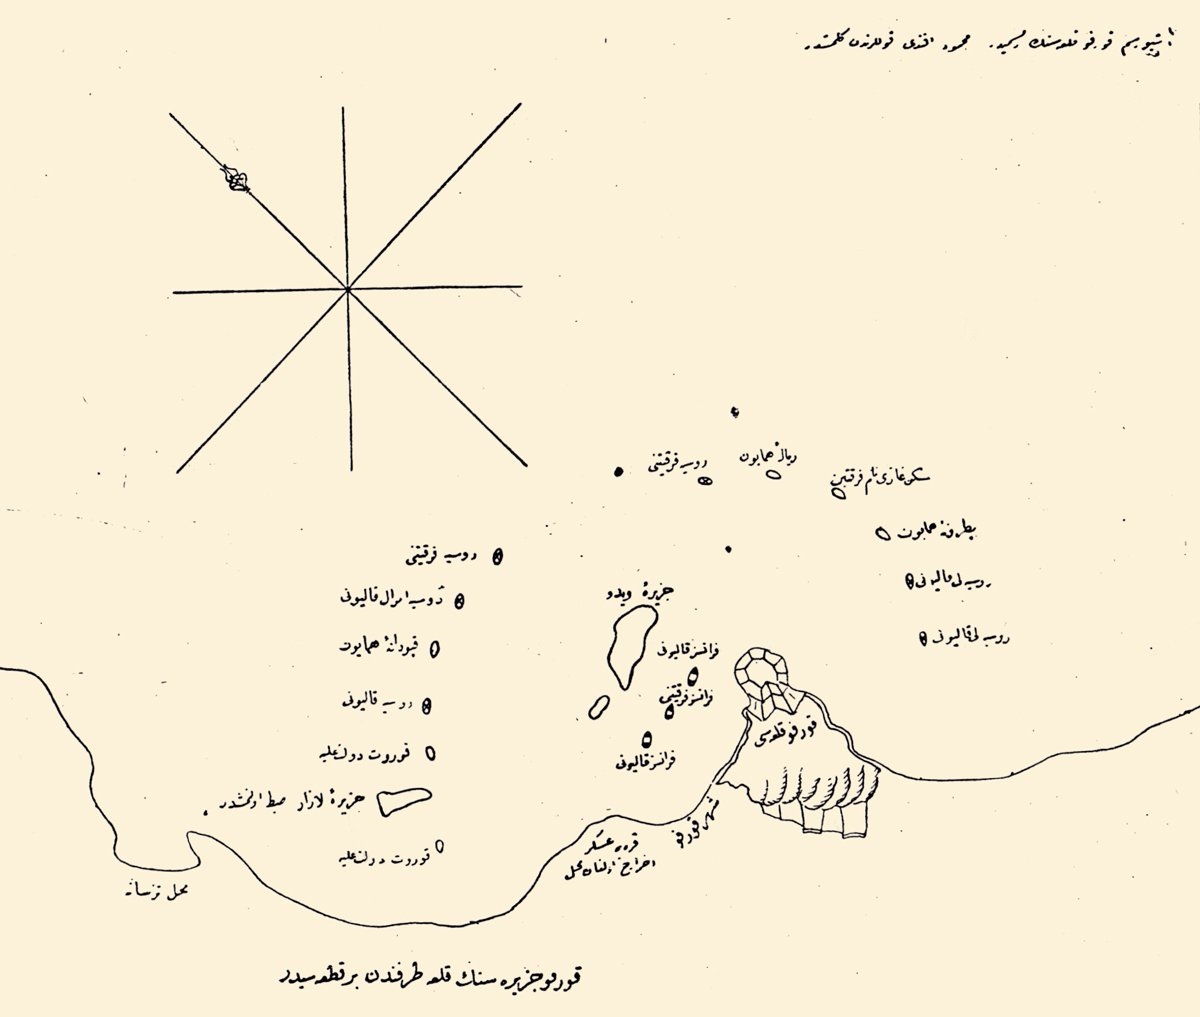 قورفو قلعه سنك رسميدر محمود افندی قوللرندن كلمشدر
روسیه فرقتینی
ریالهٔ همایون
غازی نام فرقتین
پطرونهٔ همایون
روسیه لی قالیونی
روسیه لی قالیونی
روسیه فرقتینی
روسیه امرال قالیونی
قپودانهٔ همایون
روسیه قالیونی
قوروت دولت علیه
جزیرهٔ لازار ضبط اولنمشدر
قوروت دولت علیه
جزیرهٔ ویدو
فرانسز قالیونی
فرانسز فرقتینی
فرانسز قالیونی
قورفو قلعه سی
شهر قورفو
قره یه عسكر
اخراج اولنان محل
محل ترسانه
قورفو جزیره سنك قلعه طرفندن بر قطعه سیدر